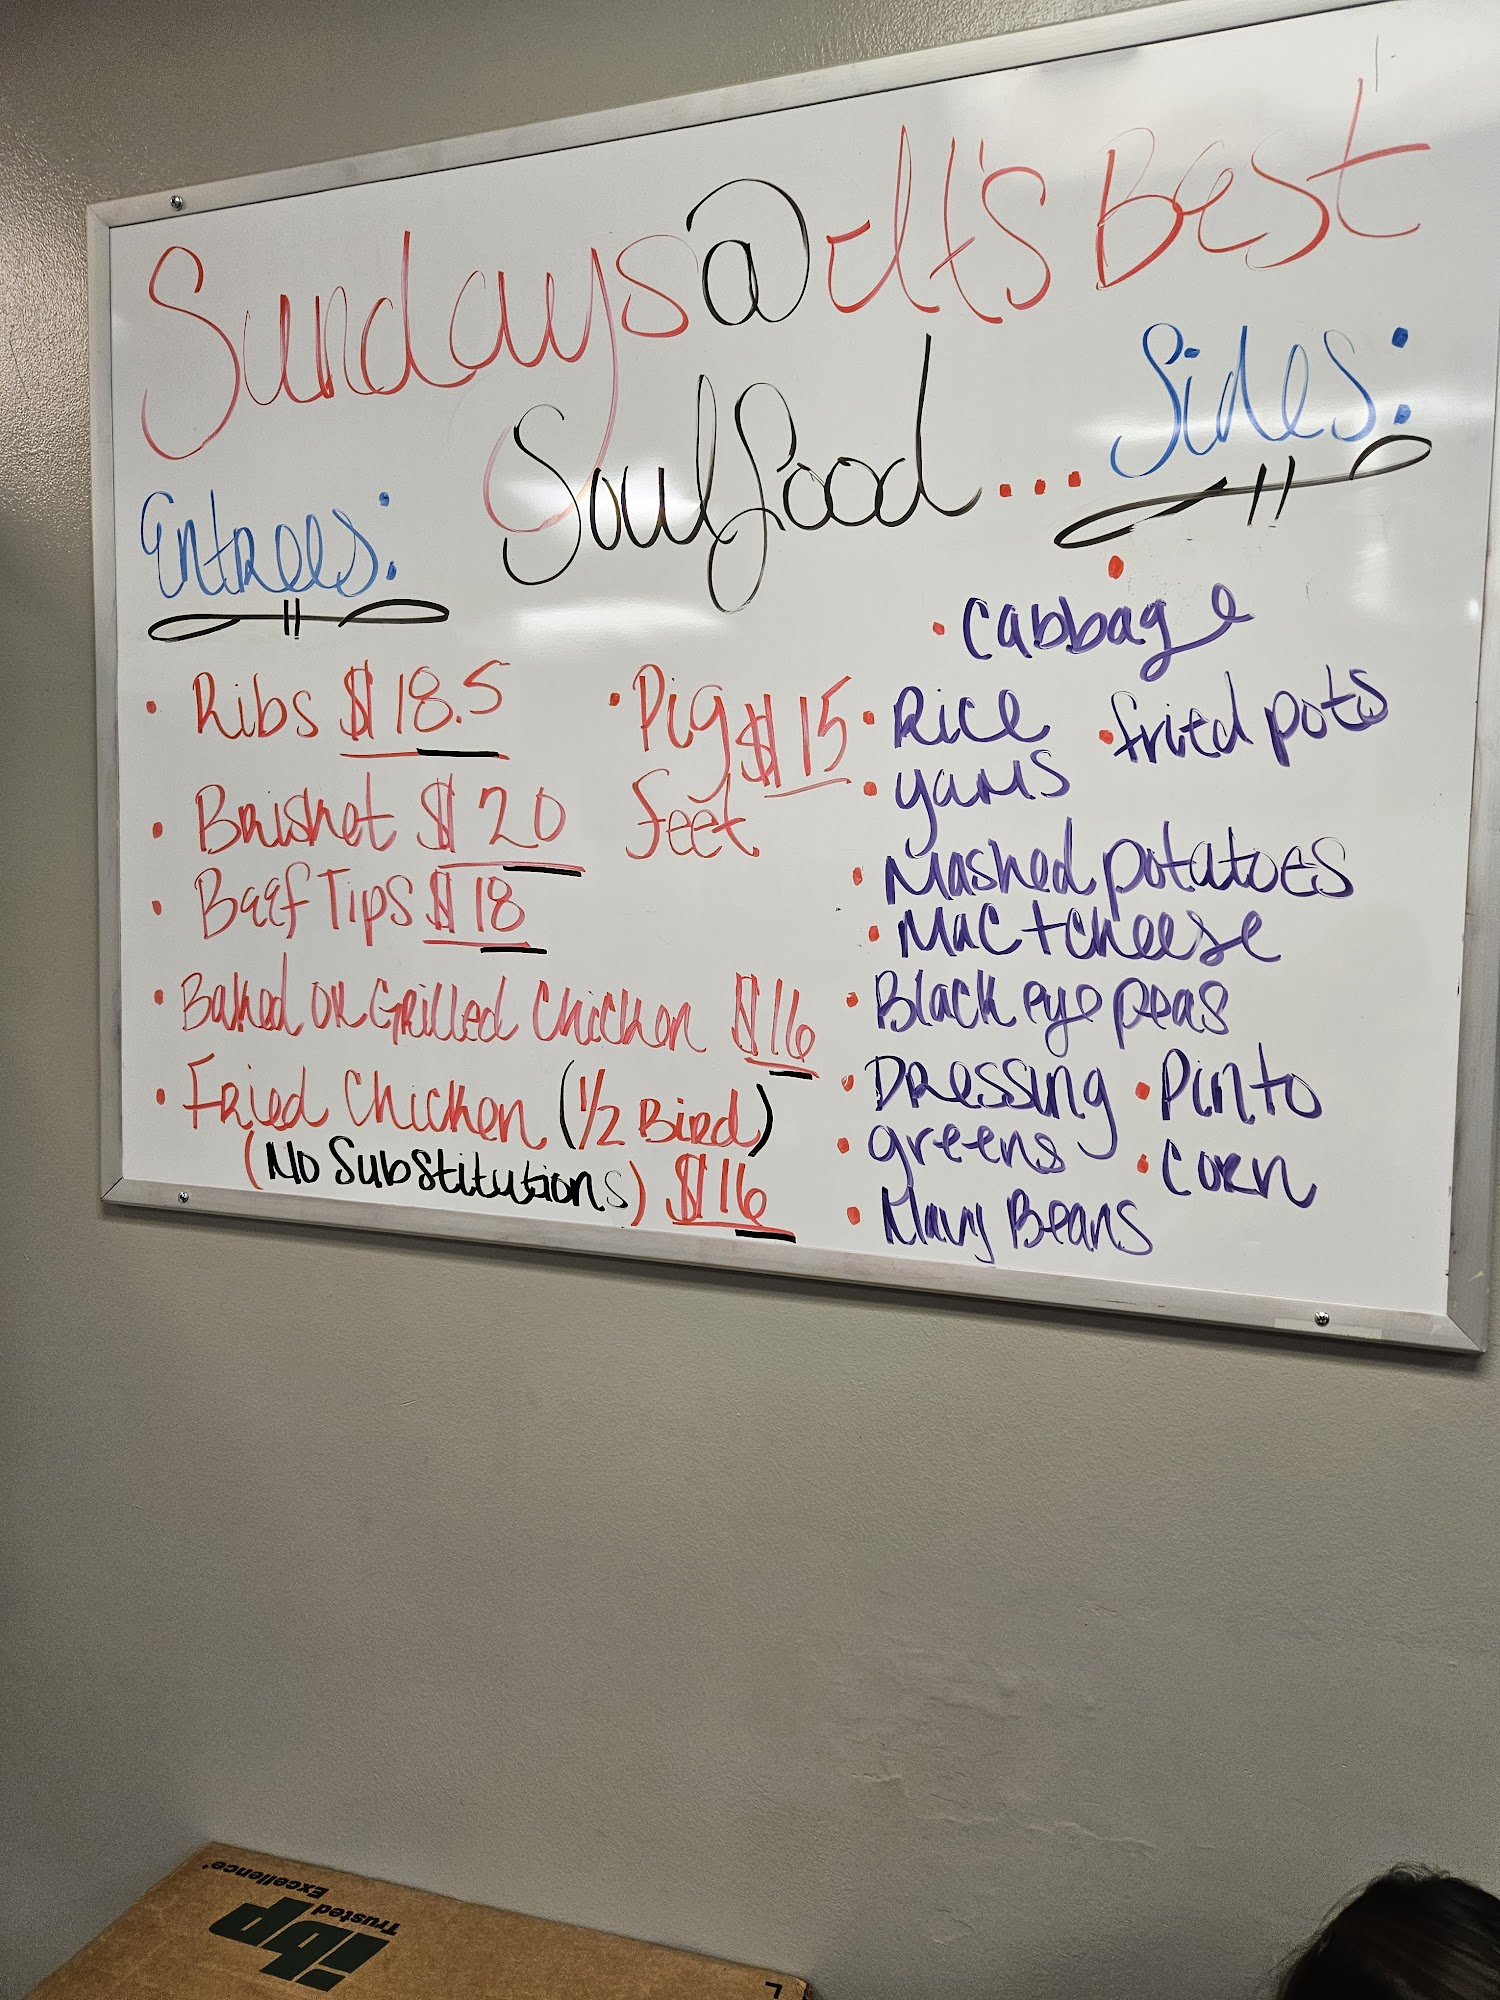 Sundays @ It's Best
Soulfood...
Entrees:
• Ribs $18.5
• Brisket $20
• Beef Tips $18
• Baked or Grilled Chicken $16
• Fried Chicken (1/2 Bird)
(No Substitutions) $16
• Pig $15
feet
Sides:
• Cabbage
• Rice • fried pots
• yams
• Mashed potatoes
• Mac + cheese
• Black eye peas
• Dressing • Pinto
• greens • corn
• Navy Beans
ibp
Trusted
Excellence